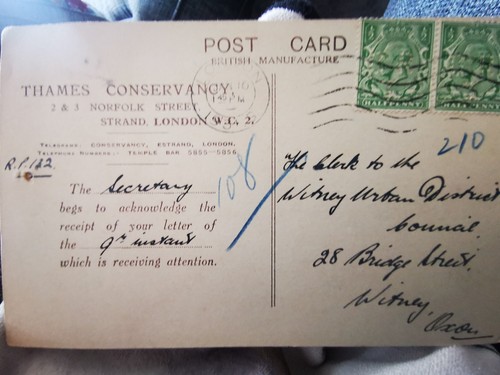 POST CARD
BRITISH MANUFACTURE
THAMES CONSERVANCY,
2 & 3 NORFOLK STREET,
STRAND, LONDON W.C. 2.
TELEGRAMS: CONSERVANCY, ESTRAND, LONDON.
TELEPHONE NUMBERS: TEMPLE BAR 5855-5856.
R.P. 132
The Secretary
begs to acknowledge the
receipt of your letter of
the 9th instant
which is receiving attention.
108
½ ½
HALFPENNY
½ ½
HALFPENNY
210
The Clerk to the
Witney Urban District
Council
28 Bridge Street,
Witney,
Oxon.